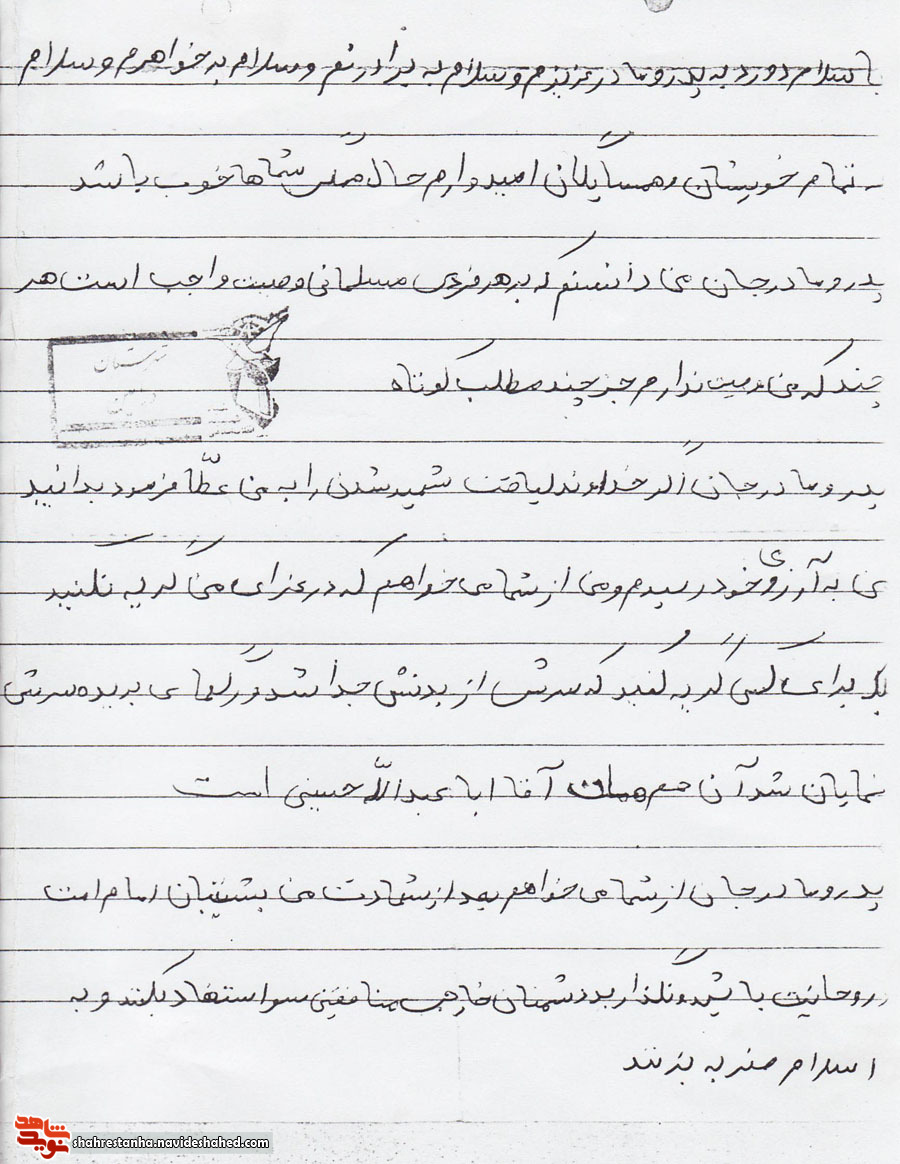 با سلام و درود به پدر و مادر عزیزم و سلام به برادرنم و سلام به خواهرم و سلام
به تمام خویشان و همسایگان امیدوارم حال همگی شماها خوب باشد
پدر و مادر جان من دانستم که بر هر فردی مسلمانی وصیت واجب است هر
چند که من وصیت ندارم جز چند مطلب کوتاه
شهرستان
پدر و مادر جان اگر خداوند لیاقت شهید شدن را به من عطّا فرمود بدانید
من به آرزوی خود رسیدم و من از شما می خواهم که در عزای من گریه نکنید
برای کسی گریه کنید که سرش از بدنش جدا شد و رگهای بریده سرش
نمایان شد آن هم آقا ابا عبداللّه حسین است
پدر و مادر جان از شما می خواهم بعد از شهادت من پشتیبان امام امت
روحانیت باشید و نگذارید دشمنان خارجی منافقین سو استفاد بکنند و به
اسلام ضربه بزنند
نوید شاهد
shahrestanha.navideshahed.com